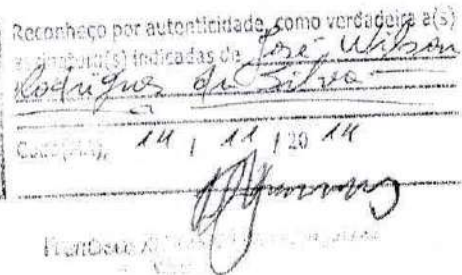 Reconheço por autenticidade, como verdadeira a(s)
assinatura(s) indicadas de José Wilson
Rodrigues da Silva
14 / 11 / 20 14
Francisco